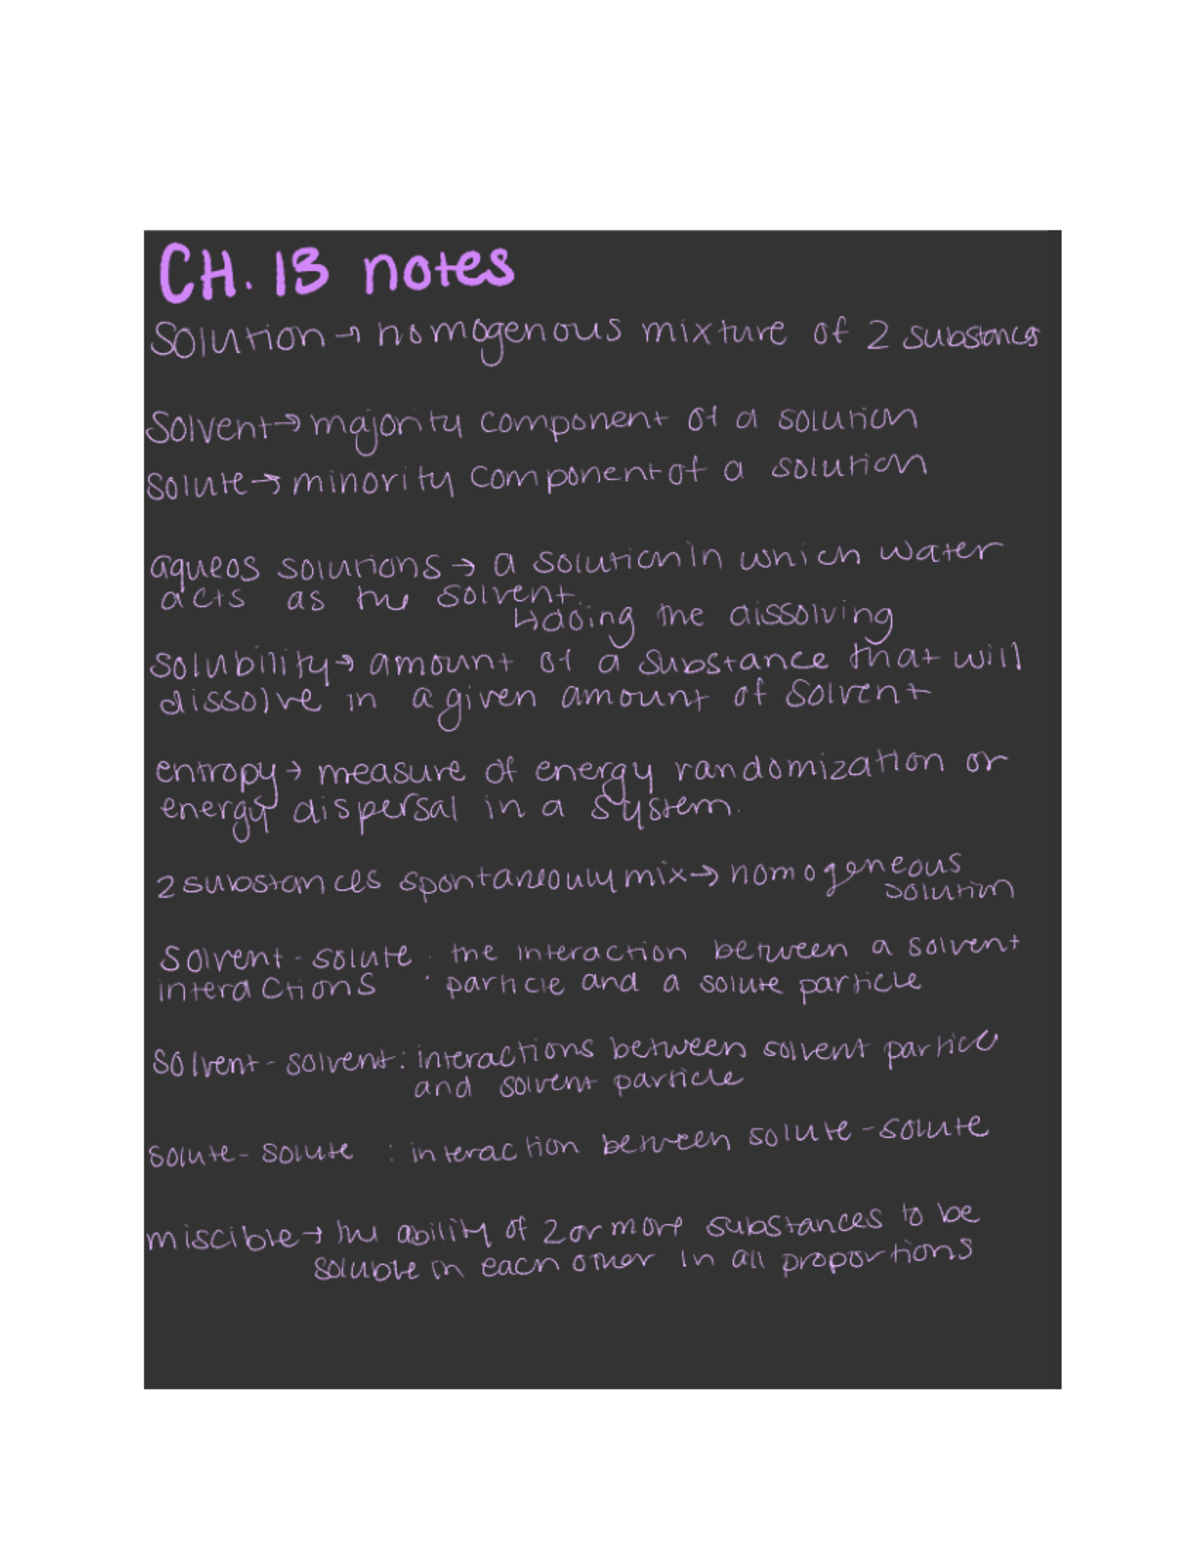 CH. 13 notes
Solution → homogenous mixture of 2 substances
Solvent → majority component of a solution
solute → minority component of a solution
aqueos solutions → a solution in which water
acts as the solvent
↳ doing the dissolving
solubility → amount of a substance that will
dissolve in a given amount of solvent
entropy → measure of energy randomization or
energy dispersal in a system.
2 substances spontaneouly mix → homogeneous
solution
Solvent - solute : the interaction between a solvent
interactions particle and a solute particle
solvent - solvent : interactions between solvent particle
and solvent particle
solute - solute : interaction between solute - solute
miscible → the ability of 2 or more substances to be
soluble in each other in all proportions